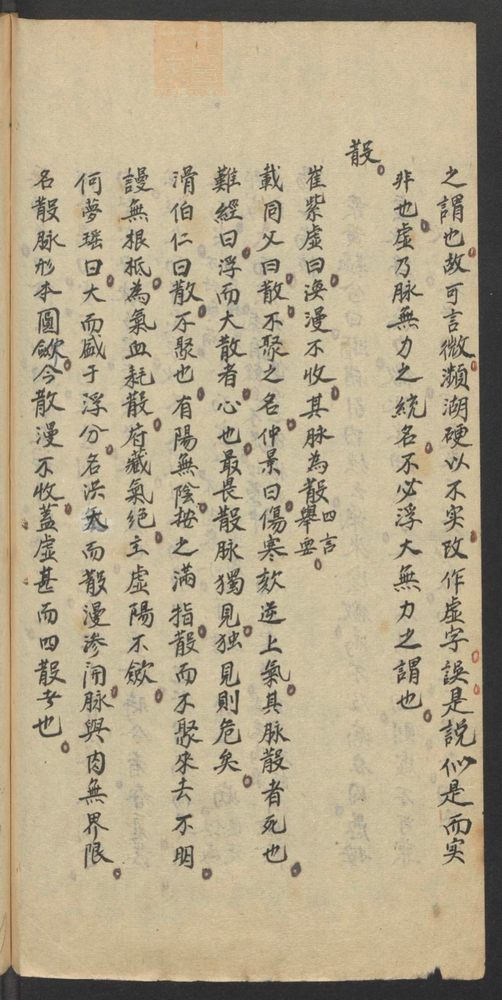 之謂也故可言微瀕湖硬以不实改作虚字誤是説似是而实
非也虚乃脉無力之統名不必浮大無力之謂也
散
崔紫虚曰渙漫不收其脉為散四言舉要
載同父曰散不聚之名仲景曰傷寒欬逆上氣其脉散者死也
難經曰浮而大散者心也最畏散脉獨見独見則危矣
滑伯仁曰散不聚也有陽無陰按之滿指散而不聚來去不明
謾無根柢為氣血耗散府藏氣絶主虚陽不斂
何夢瑶曰大而盛于浮分名洪大而散漫滲開脉與肉無界限
名散脉形本圓斂今散漫不收蓋虚甚而四散者也